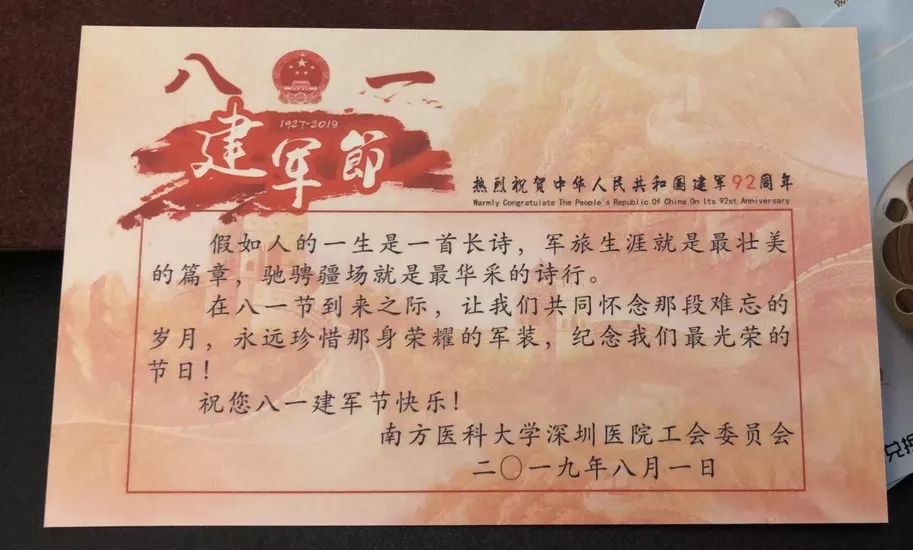 八一
1927-2019
建军節
热烈祝贺中华人民共和国建军92周年
Warmly Congratulate The People's Republic Of China On Its 92st Anniversary
假如人的一生是一首长诗，军旅生涯就是最壮美
的篇章，驰骋疆场就是最华采的诗行。
在八一节到来之际，让我们共同怀念那段难忘的
岁月，永远珍惜那身荣耀的军装，纪念我们最光荣的
节日！
祝您八一建军节快乐！
南方医科大学深圳医院工会委员会
二〇一九年八月一日
兑换